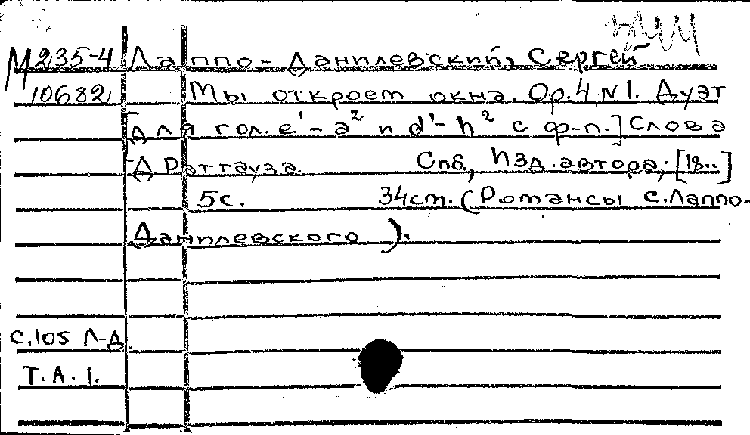 М 235-4 Лаппо-Данилевский, Сергей
10682 Мы откроем окна. Ор.4, N1. Дуэт
[для гол. e¹-a² и d¹-h² с ф-п.] Слова
Д. Ратгауза. Спб, Изд. автора, [18..]
5с. 34см. (Романсы С. Лаппо-
Данилевского).
С.105 Л-Д
Т.А.1.